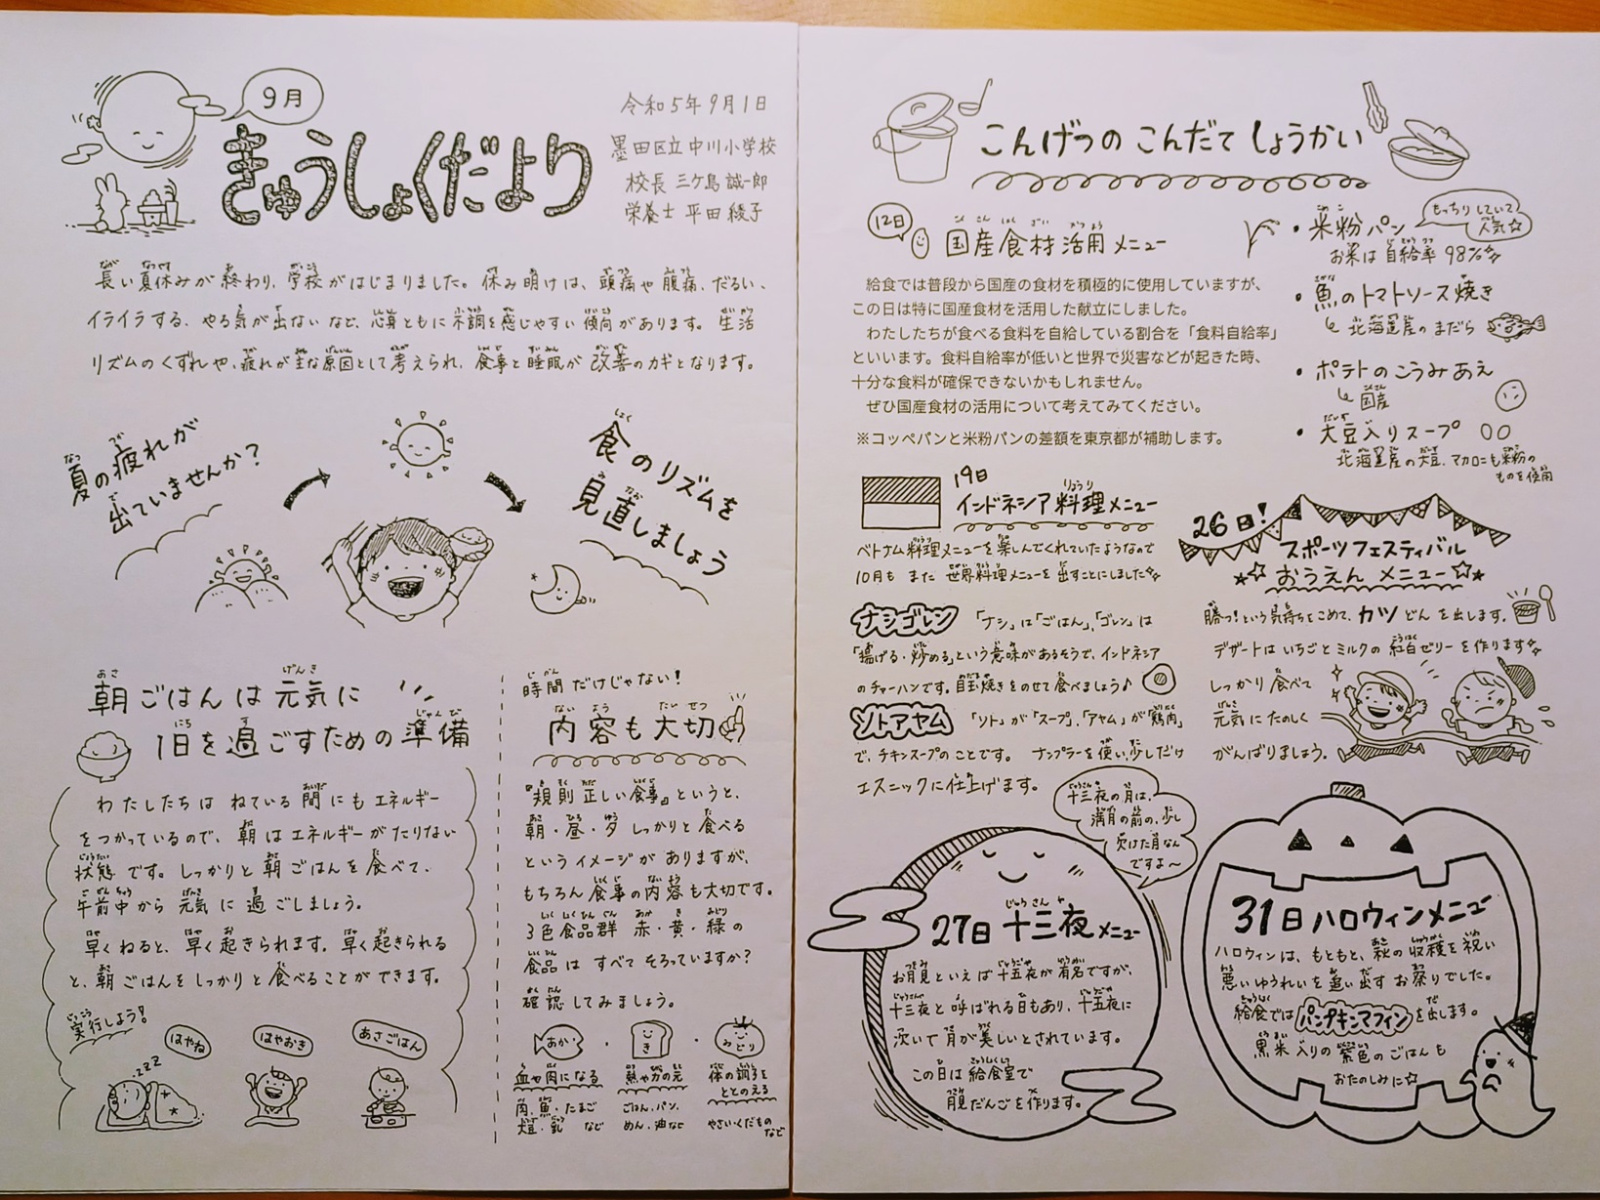 9月
きゅうしょくだより
令和5年9月1日
墨田区立中川小学校
校長 三ケ島 誠一郎
栄養士 平田 綾子
長い夏休みが終わり、学校がはじまりました。休み明けは、頭痛や腹痛、だるい、
イライラする、やる気が出ないなど、心身ともに不調を感じやすい傾向があります。生活
リズムのくずれや、疲れが主な原因として考えられ、食事と睡眠が改善のカギとなります。
夏の疲れが
出ていませんか？
食のリズムを
見直しましょう
朝ごはんは元気に
1日を過ごすための準備
わたしたちはねている間にもエネルギー
をつかっているので、朝はエネルギーがたりない
状態です。しっかりと朝ごはんを食べて、
午前中から元気に過ごしましょう。
早くねると、早く起きられます。早く起きられる
と、朝ごはんをしっかりと食べることができます。
実行しよう！
はやね
はやおき
あさごはん
zzz
時間だけじゃない！
内容も大切
『規則正しい食事』というと、
朝・昼・夕しっかりと食べる
というイメージがありますが、
もちろん食事の内容も大切です。
3色食品群 赤・黄・緑の
食品はすべてそろっていますか？
確認してみましょう。
あか・き・みどり
血や肉になる
肉、魚・たまご
大豆・乳 など
熱や力の元
ごはん、パン、
めん、油など
体の調子を
ととのえる
やさい・くだもの
など
こんげつの こんだて しょうかい
12日
国産食材活用メニュー
給食では普段から国産の食材を積極的に使用していますが、
この日は特に国産食材を活用した献立にしました。
わたしたちが食べる食料を自給している割合を「食料自給率」
といいます。食料自給率が低いと世界で災害などが起きた時、
十分な食料が確保できないかもしれません。
ぜひ国産食材の活用について考えてみてください。
※コッペパンと米粉パンの差額を東京都が補助します。
・米粉パン
もっちりしていて
人気☆
お米は自給率98%☆
・魚のトマトソース焼き
↳北海道産のまだら
・ポテトのこうみあえ
↳国産
・大豆入りスープ
北海道産の大豆、マカロニも米粉の
ものを使用
19日
インドネシア料理メニュー
ベトナム料理メニューを楽しんでくれていたようなので
10月もまた世界料理メニューを出すことにしました☆
ナシゴレン 「ナシ」は「ごはん」、「ゴレン」は
「揚げる・炒める」という意味があるそうで、インドネシア
のチャーハンです。目玉焼きをのせて食べましょう♪
ソトアヤム 「ソト」が「スープ」、「アヤム」が「鶏肉」
で、チキンスープのことです。ナンプラーを使い、少しだけ
エスニックに仕上げます。
26日！
スポーツフェスティバル
☆おうえんメニュー☆
勝つ！という気持ちをこめて、カツどんを出します。
デザートはいちごとミルクの紅白ゼリーを作ります☆
しっかり食べて
元気にたのしく
がんばりましょう。
十三夜の月は、
満月の前の、少し
欠けた月なん
ですよ〜
27日 十三夜メニュー
お月見といえば十五夜が有名ですが、
十三夜と呼ばれる日もあり、十五夜に
次いで月が美しいとされています。
この日は給食室で
月見だんごを作ります。
31日ハロウィンメニュー
ハロウィンは、もともと、秋の収穫を祝い
悪いゆうれいを追い出すお祭りでした。
給食ではパンプキンマフィンを出します。
黒米入りの紫色のごはんも
おたのしみに☆